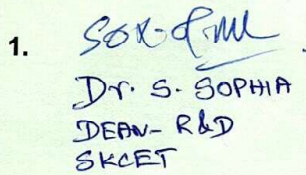 1.
Dr. S. SOPHIA
DEAN- R&D
SKCET